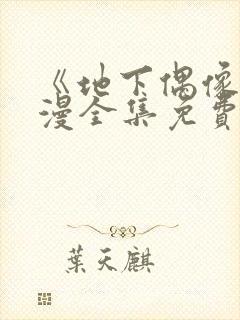 《地下偶像
漫全集免費
葉天麒